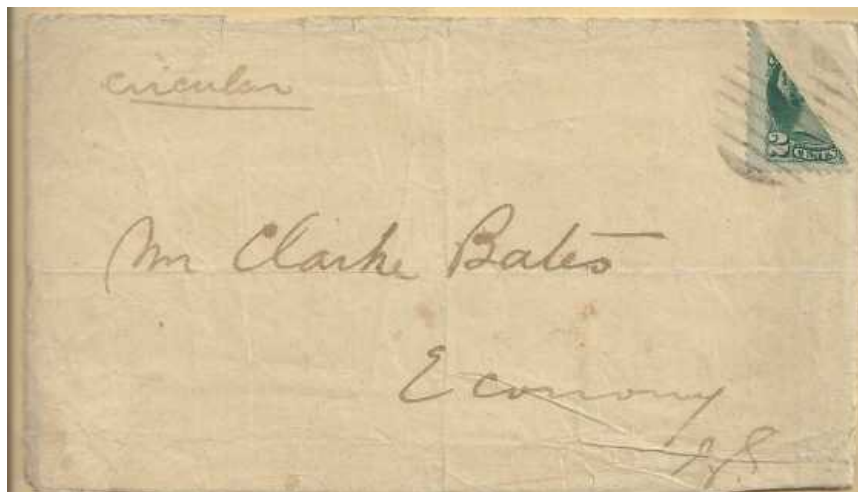 circular
2 CENTS
Mr Clarke Bates
Economy
N.S.